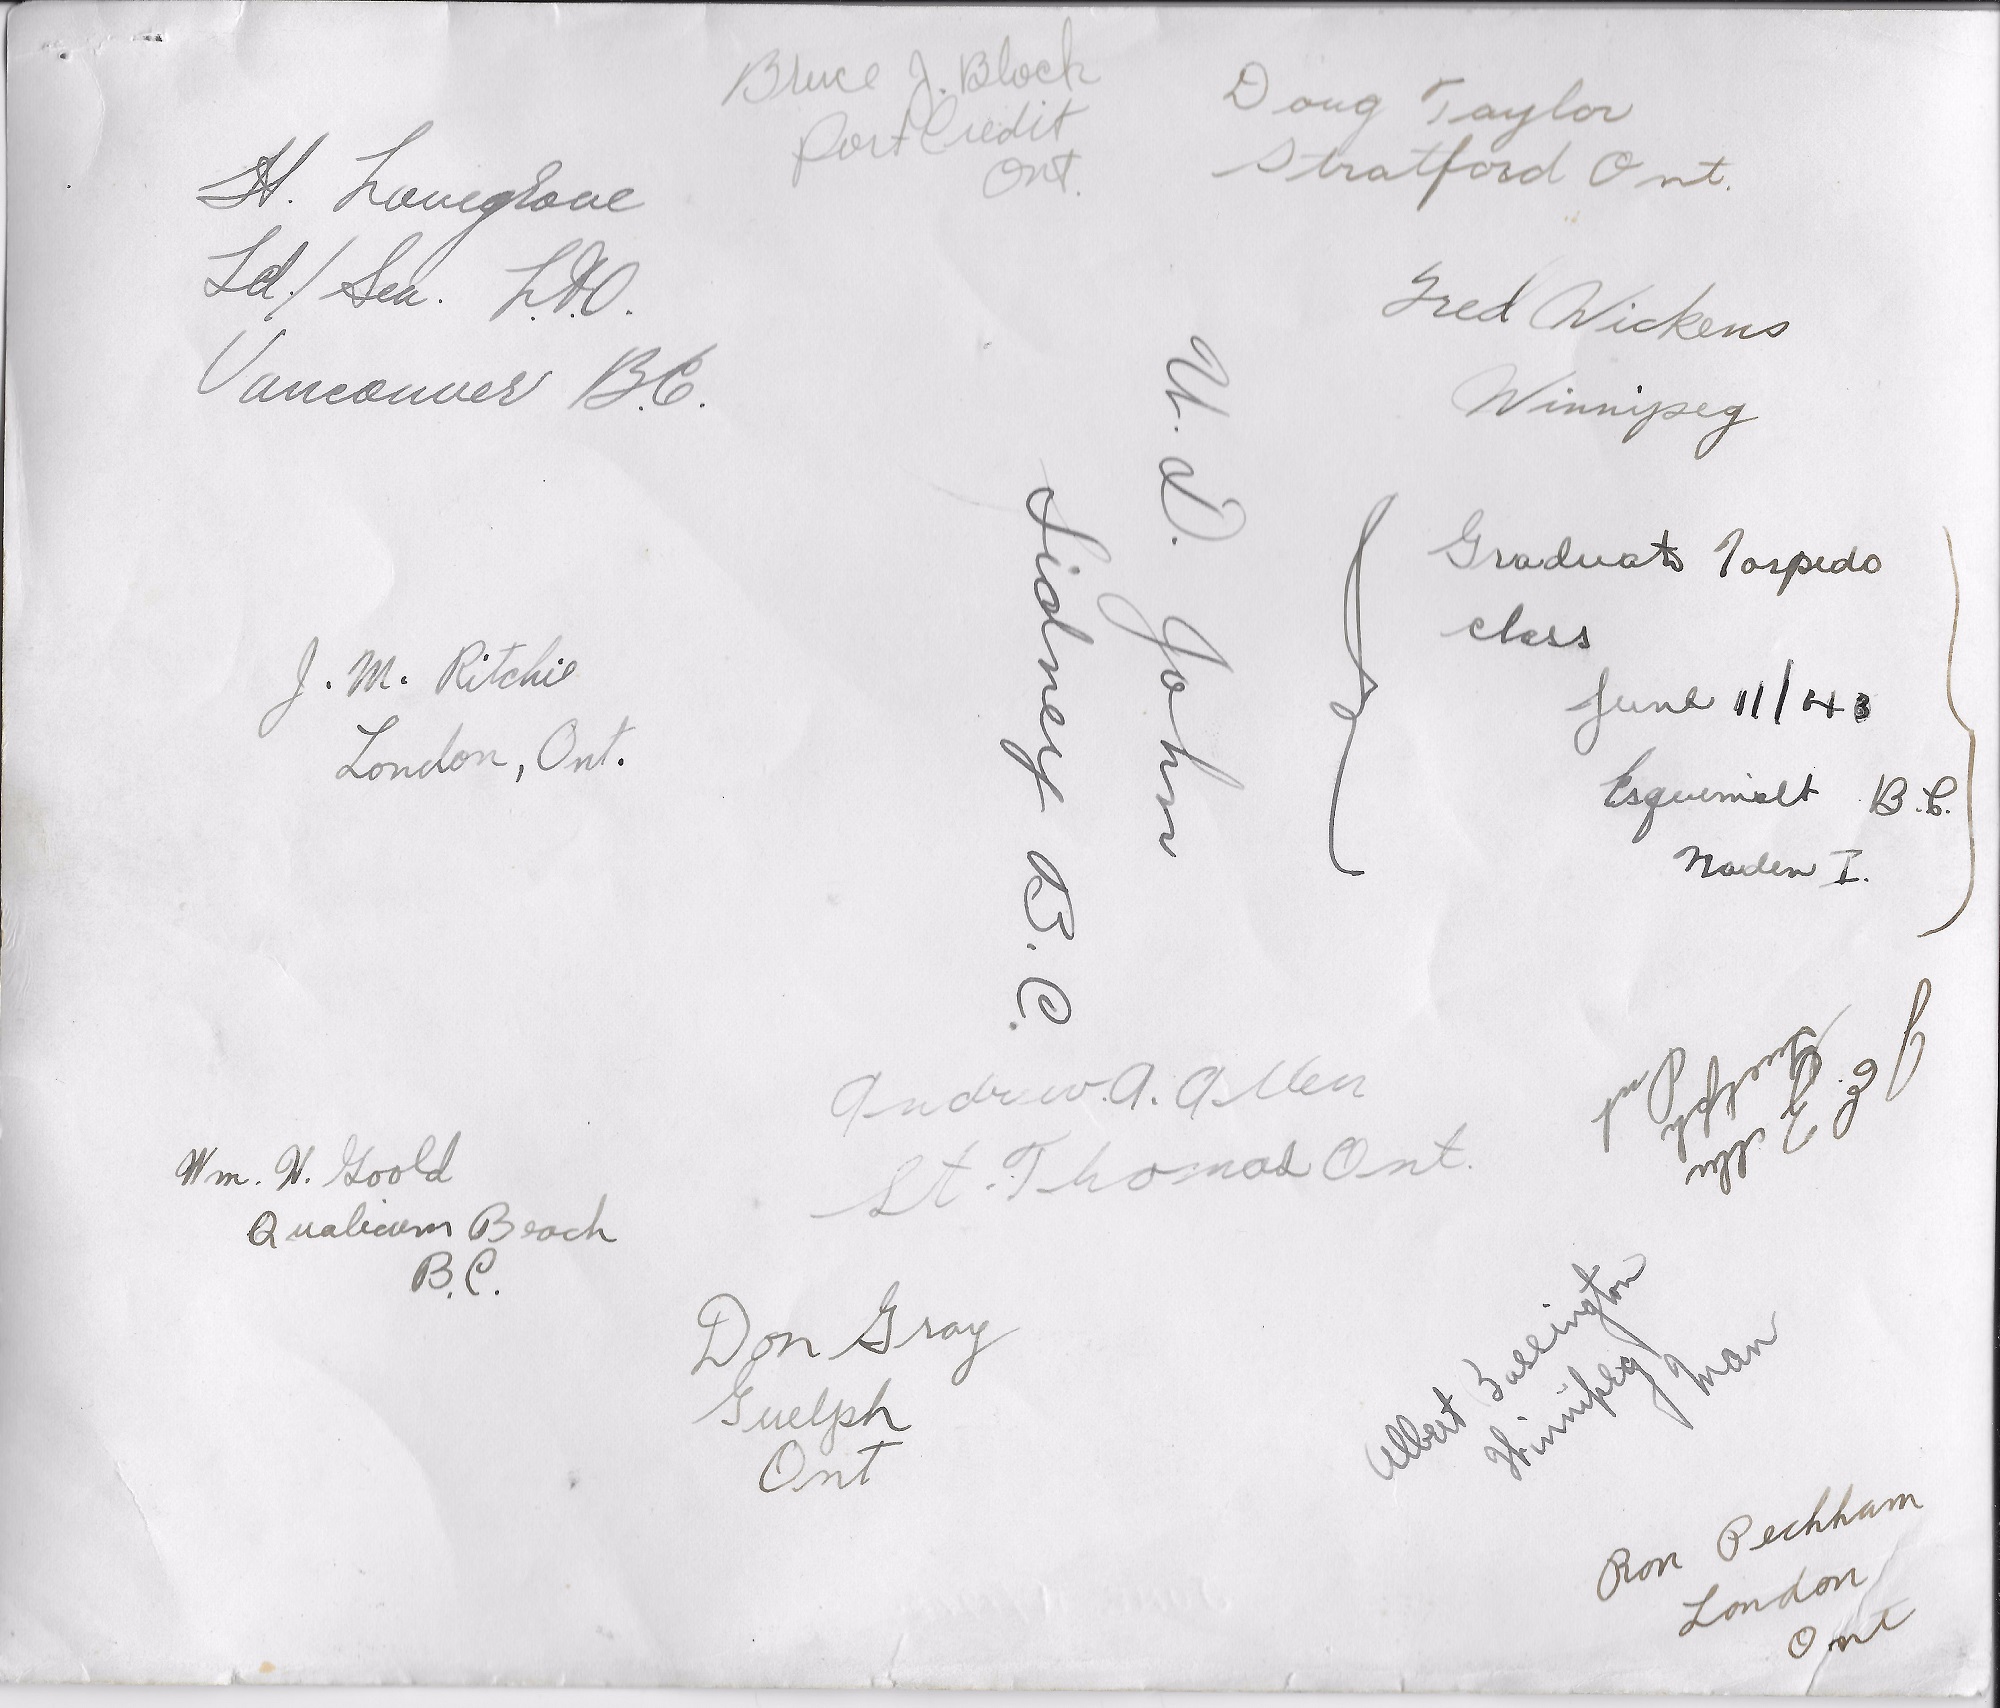 Bruce J. Block
Port Credit
Ont.
Doug Taylor
Stratford Ont.
H. Lovegrove
Ld/Sea. L.T.O.
Vancouver B.C.
Fred Wickens
Winnipeg
U. D. John
Sidney B.C.
Graduate Torpedo
class
June 11/43
Esquimalt B.C.
Naden I.
J. M. Ritchie
London, Ont.
J. E.
Andrew. A. Allen
St. Thomas Ont.
Wm. H. Goold
Qualicum Beach
B.C.
Don Gray
Guelph
Ont
Albert Bassington
Winnipeg Man
Ron Peckham
London
Ont